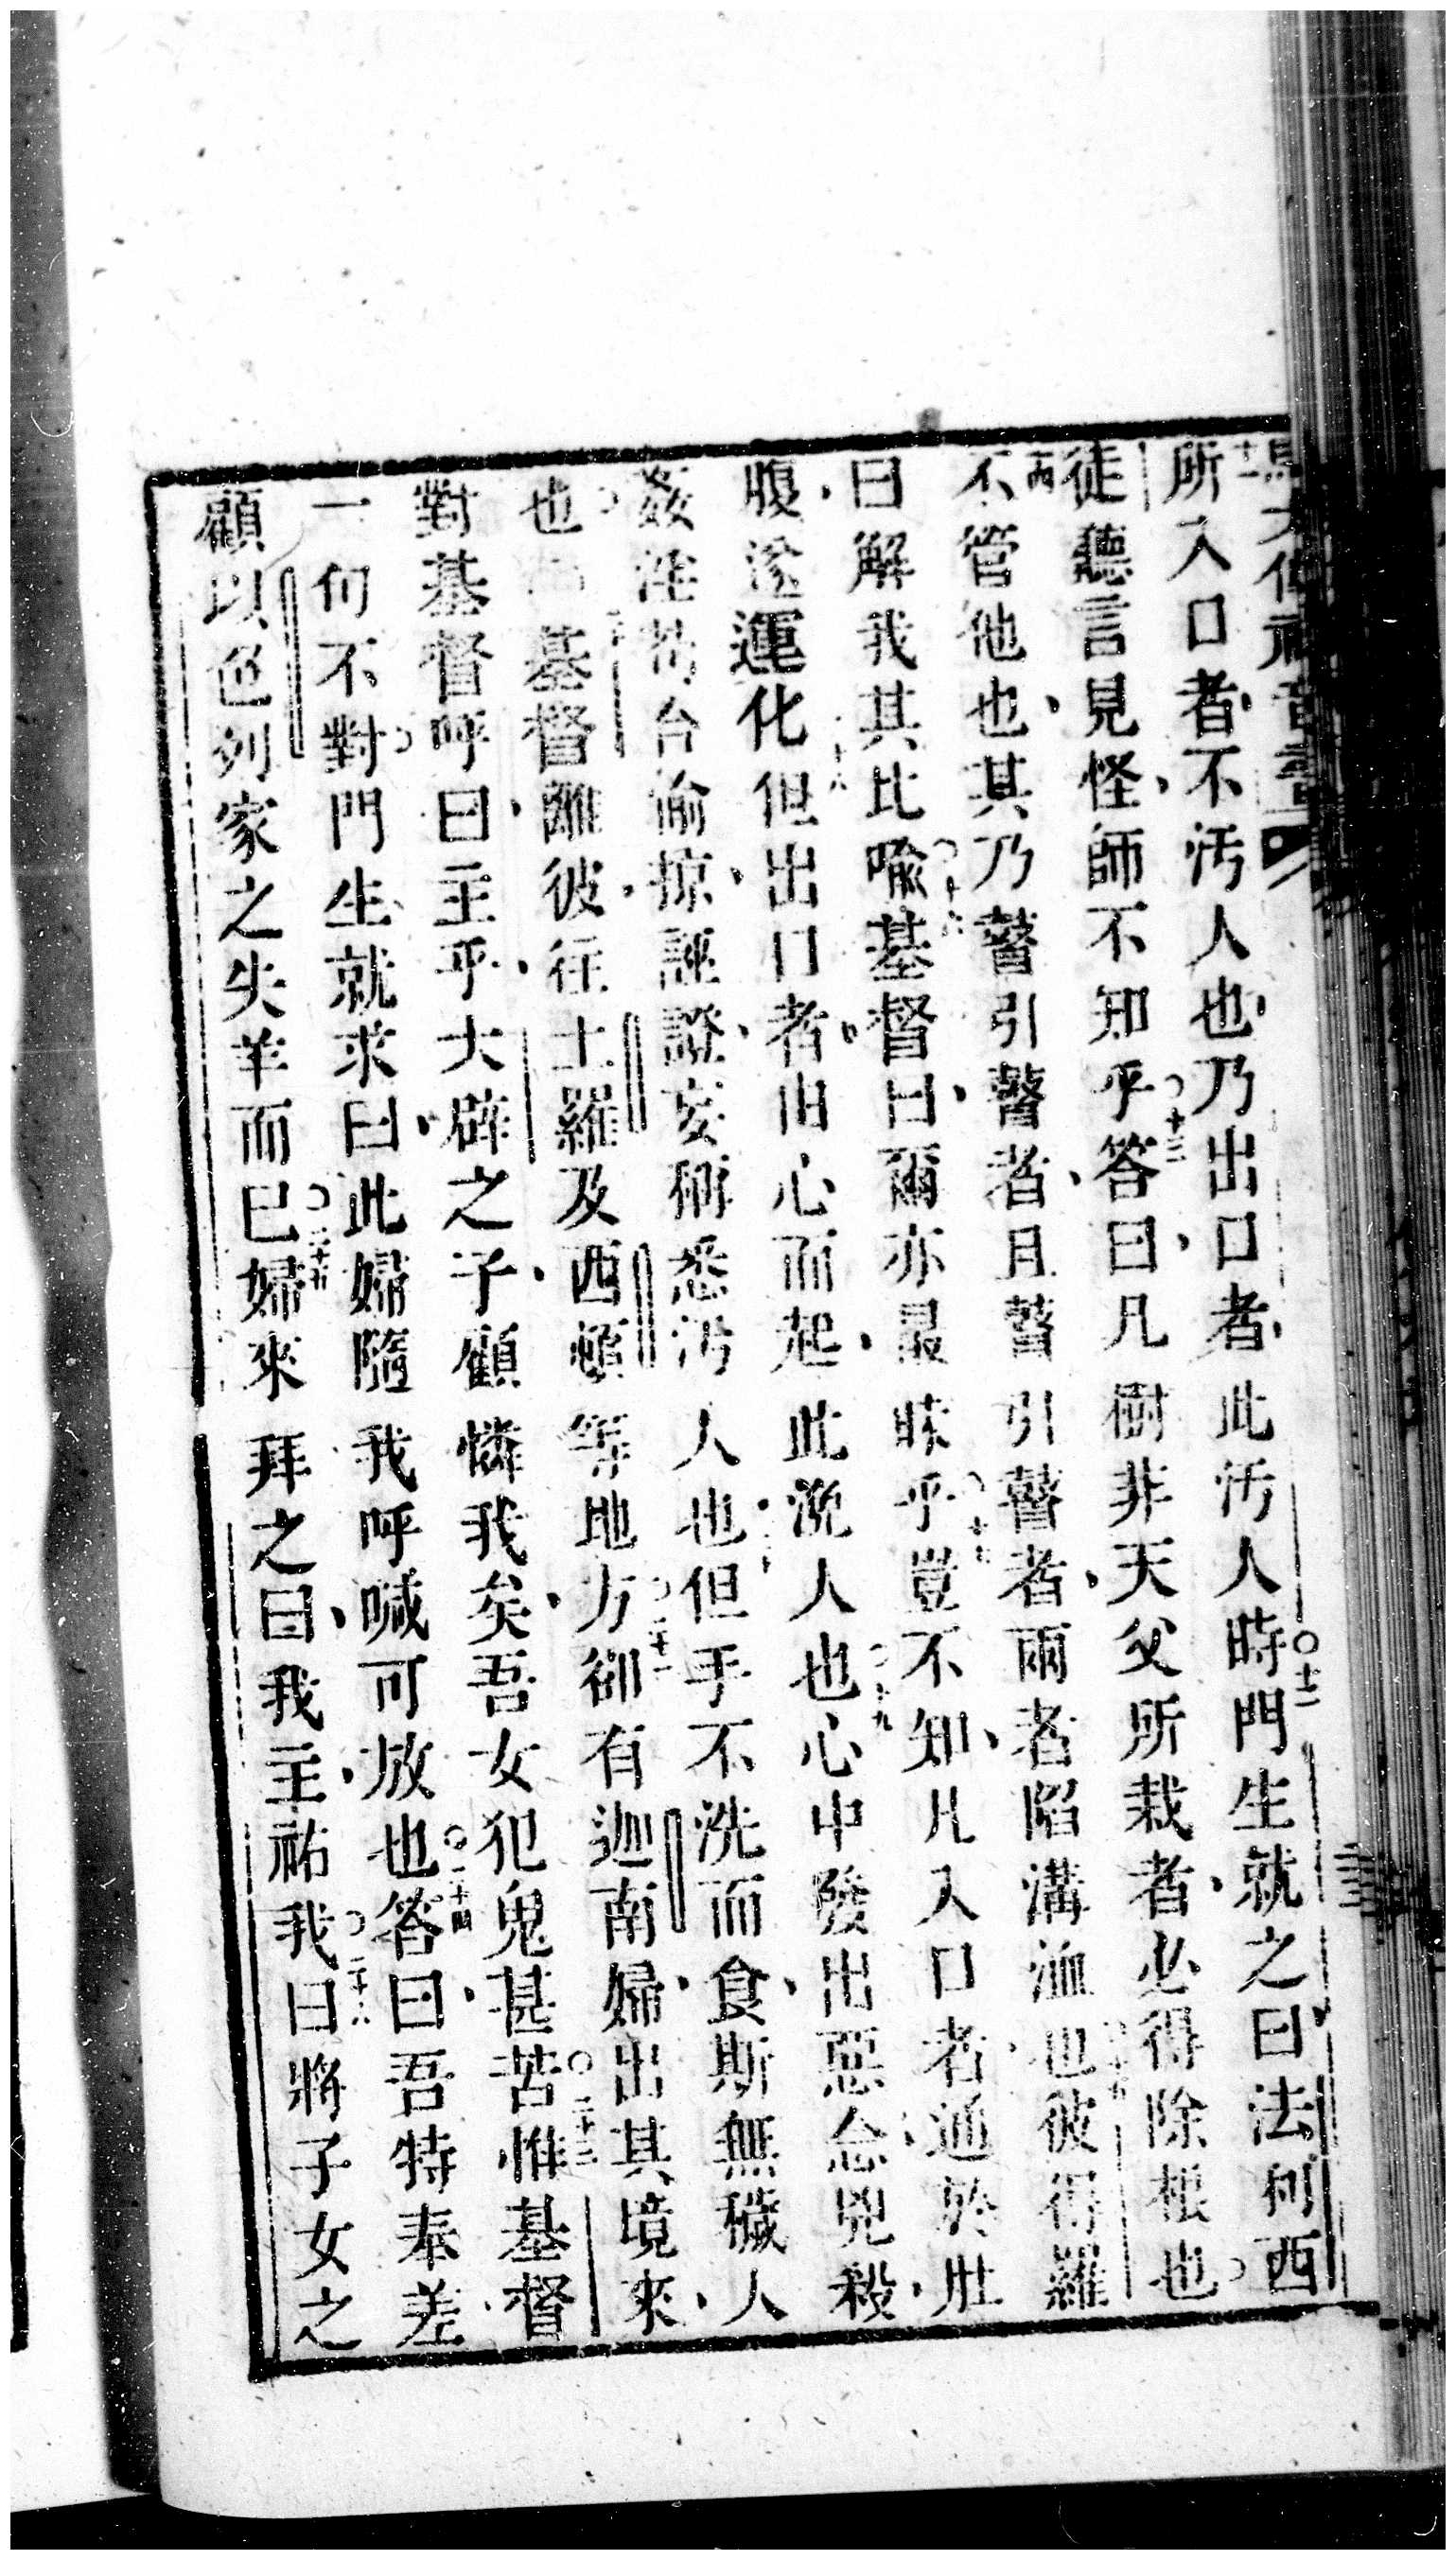 所入口者不汚人也乃出口者此汚人時門生就之曰法利西
徒聽言見怪師不知乎答曰凡樹非天父所栽者必得除根也
不管他也其乃瞽引瞽者且瞽引瞽者兩者陷溝洫也彼得羅
曰解我其比喻基督曰爾亦最昧乎豈不知凡入口者通於肚
腹遂運化但出口者由心而起此浼人也心中發出惡念兇殺
姦淫苟合偷掠誣證妄稱悉汚人也但手不洗而食斯無穢人
也基督離彼往土羅及西頓等地方卻有迦南婦出其境來
對基督呼曰主乎大辟之子顧憐我矣吾女犯鬼甚苦惟基督
一句不對門生就求曰此婦隨我呼喊可放也答曰吾特奉差
顧以色列家之失羊而已婦來拜之曰我主祐我曰將子女之